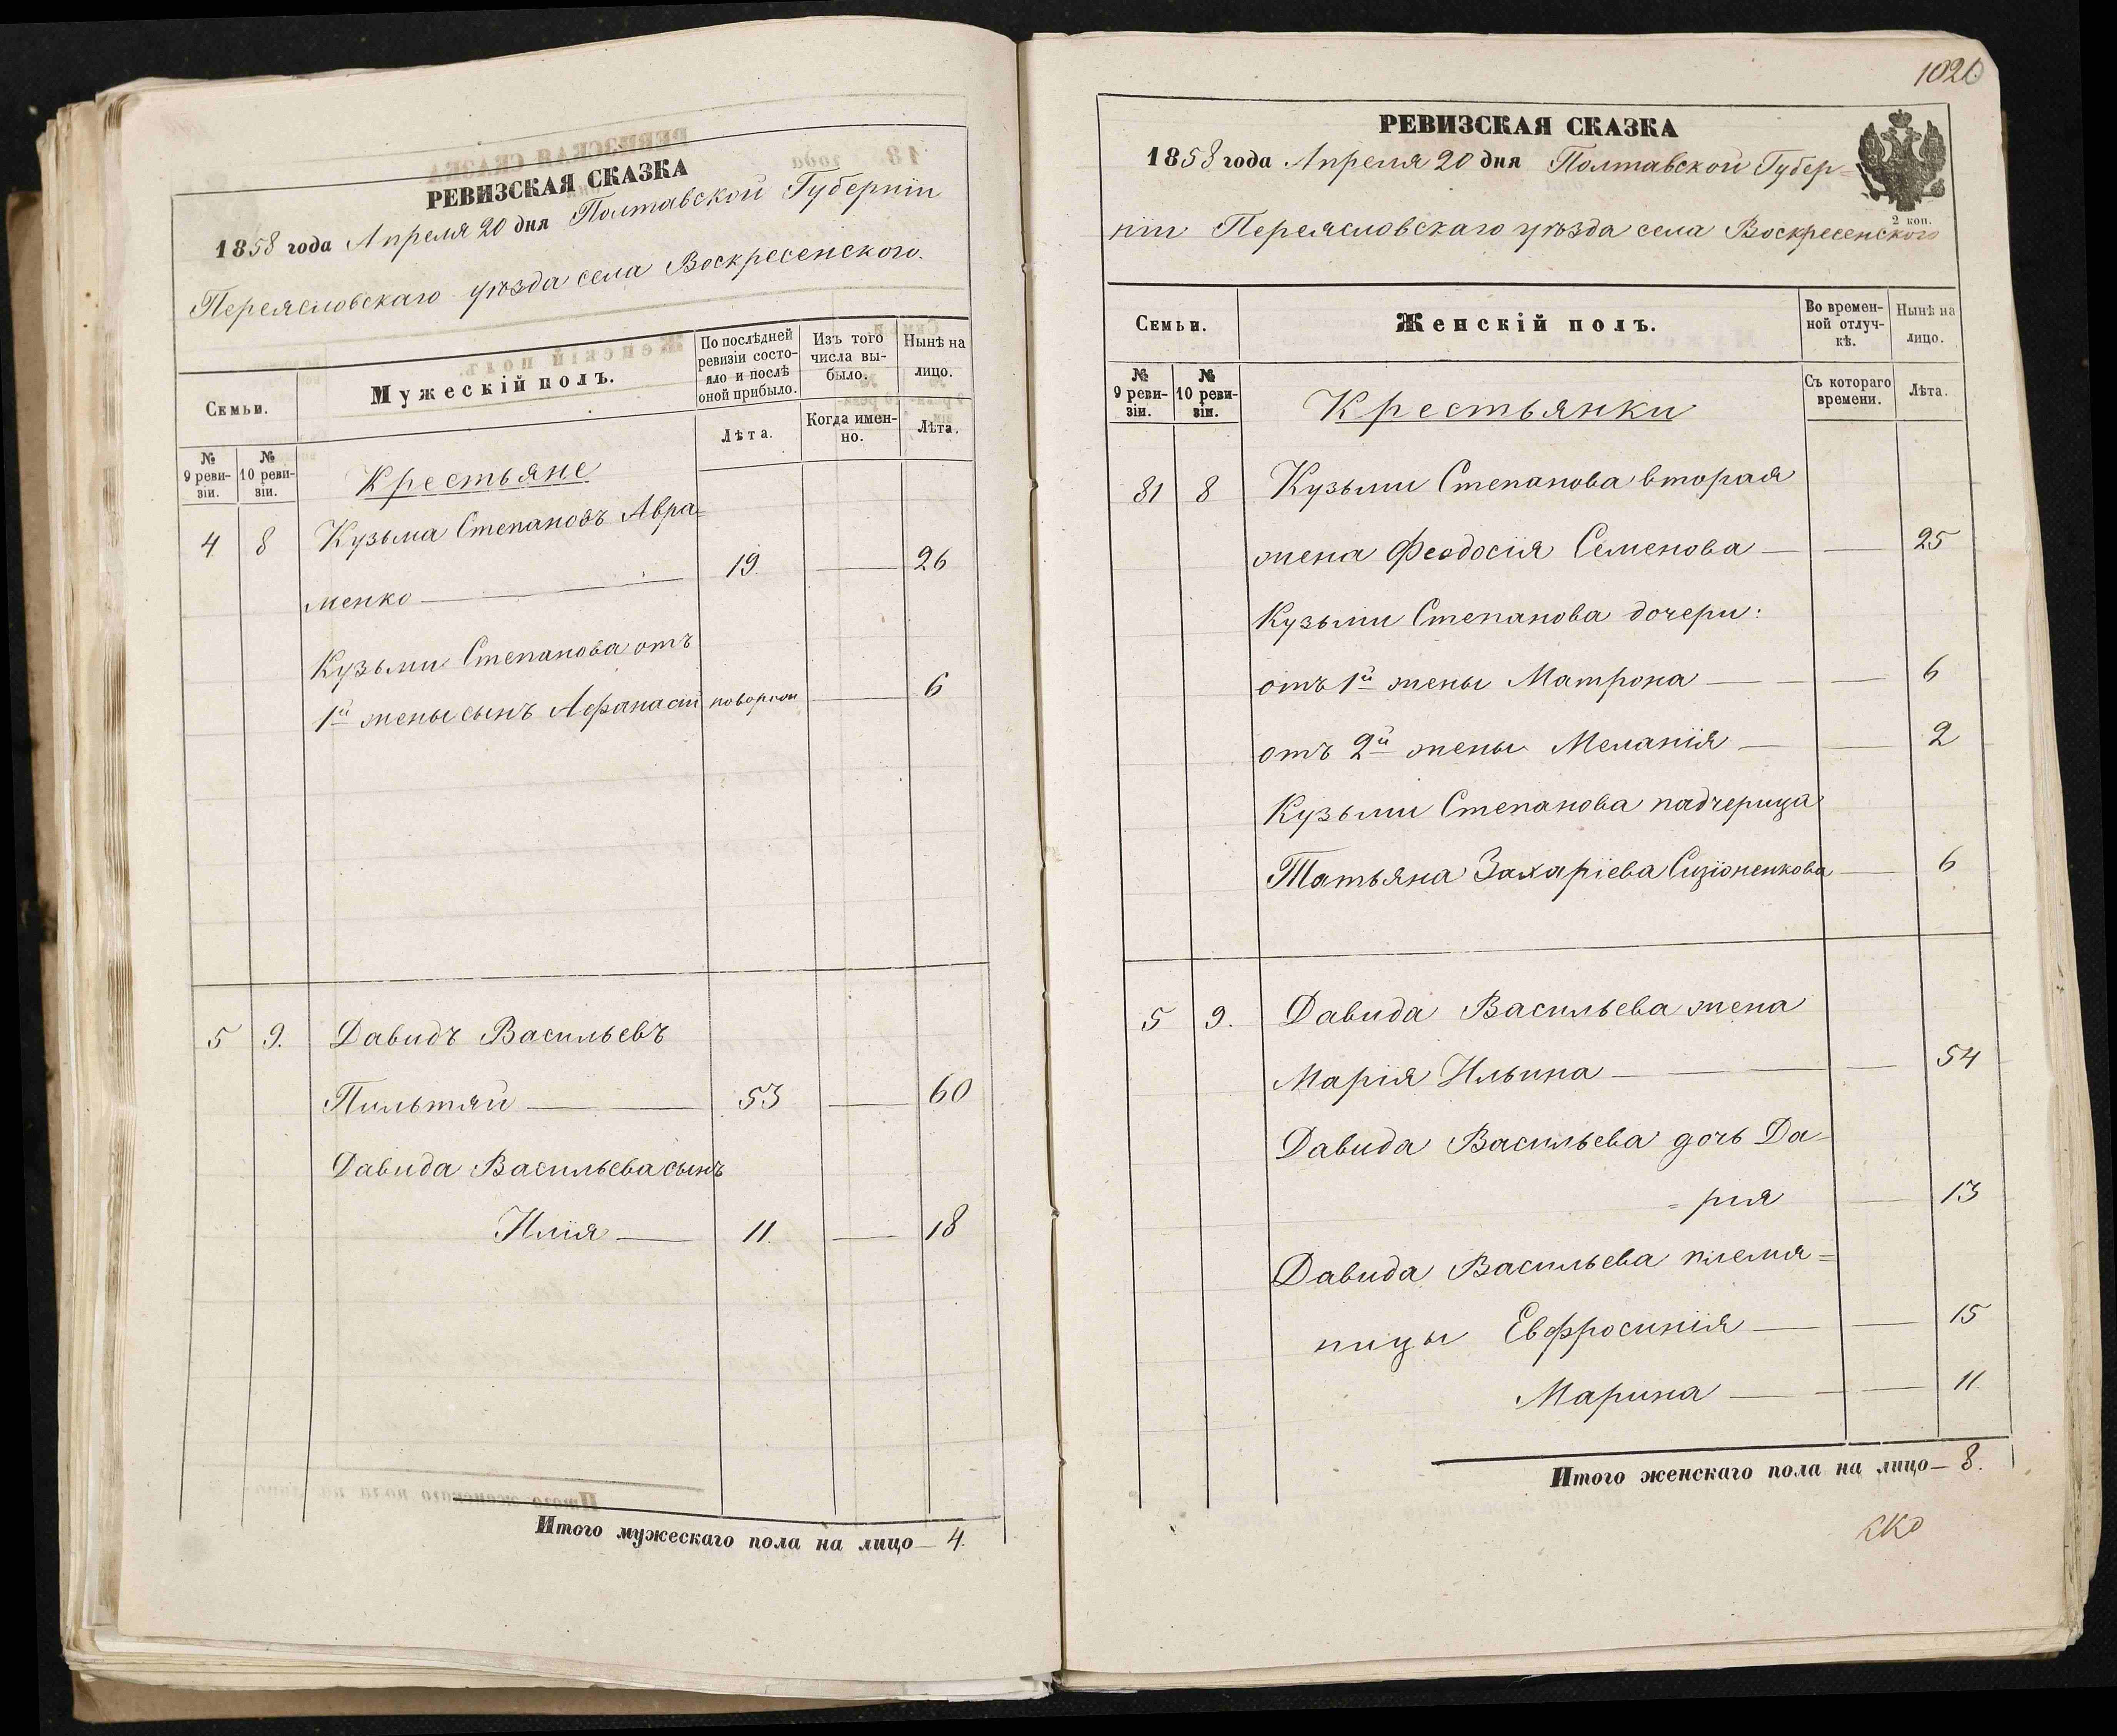 РЕВИЗСКАЯ СКАЗКА
1858 года Апреля 20 дня Полтавской Губернiи
Переясловскаго уѣзда села Воскресенского.
Семьи.
Мужескій полъ.
По послѣдней ревизіи состояло и послѣ оной прибыло.
Изъ того числа выбыло.
Нынѣ на лицо.
№ 9 ревизіи.
№ 10 ревизіи.
Лѣта.
Когда именно.
Лѣта.
Крестьяне
4 8 Кузьма Степановъ Авра-
менко — 19 — 26
Кузьми Степанова отъ
1й жены сынъ Афанасiй новорож — 6
5 9. Давидъ Васильевъ
Пильтяй — 53 — 60
Давида Васильева сынъ
Илiя — 11. — 18
Итого мужескаго пола на лицо — 4.
1020
РЕВИЗСКАЯ СКАЗКА
1858 года Апреля 20 дня Полтавской Губер-
нiи Переясловскаго уѣзда села Воскресенского
2 коп.
Семьи.
Женскій полъ.
Во временной отлучкѣ.
Нынѣ на лицо.
№ 9 ревизіи.
№ 10 ревизіи.
Съ котораго времени.
Лѣта.
Крестьянки
81 8 Кузьми Степанова вторая
жена Феодосiя Семенова — — 25
Кузьми Степанова дочери:
отъ 1й жены Матрона — — 6
отъ 2й жены Меланiя — — 2
Кузьми Степанова падчерица
Татьяна Захарiева Сизiоненкова — 6
5 9. Давида Васильева жена
Марiя Ильина — — 54
Давида Васильева дочь Да-
=рiя — 13
Давида Васильева племя=
ницы Евфросинiя — — 15
Марина — — 11.
Итого женскаго пола на лицо — 8.